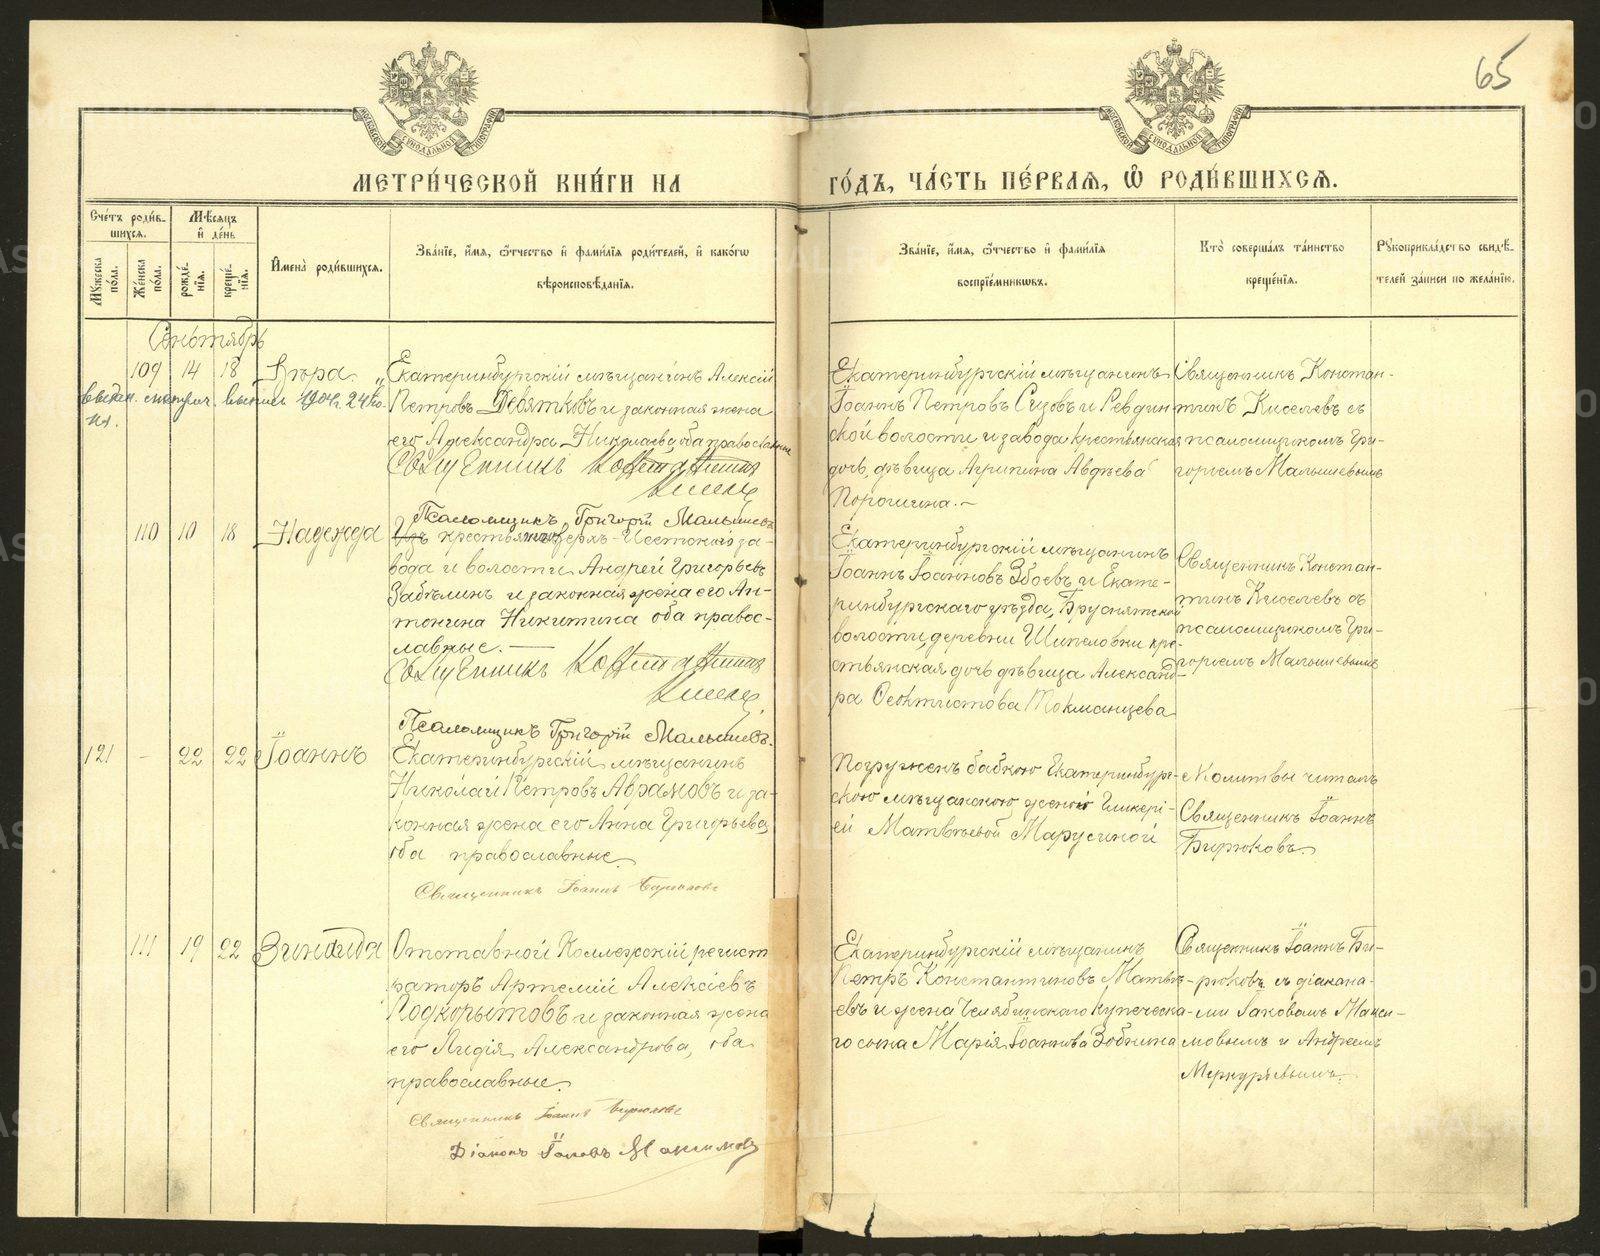 65
МОСКОВСКОЙ СѴНОДАЛЬНОЙ ТИПОГРАФІИ
МОСКОВСКОЙ СѴНОДАЛЬНОЙ ТИПОГРАФІИ
МЕТРИ́ЧЕСКОЙ КНИ́ГИ НА
ГО́ДЪ, ЧА́СТЬ ПЕ́РВАѦ, Ѿ РОДИ́ВШИХСѦ.
Сче́тъ роди́в-
шихсѧ.
Мѣ́сѧцъ
и҆ де́нь
Мꙋ́жеска
по́ла.
Же́нска
по́ла.
рожде́-
нїѧ.
креще́-
нїѧ.
И҆мена̀ роди́вшихсѧ.
Зва́нїе, и҆́мѧ, ѻ҆́тчество и҆ фами́лїѧ роди́телей, и҆ како́гѡ
вѣроисповѣ́данїѧ.
Зва́нїе, и҆́мѧ, ѻ҆́тчество и҆ фами́лїѧ
воспрїе́мникѡвъ.
Кто̀ соверша́лъ та́инство
креще́нїѧ.
Рꙋкоприкла́дство свидѣ́-
телей за́писи по жела́нїю.
Сентябрь
109 14 18 Вѣра
Екатеринбургскій мѣщанинъ Алексій
Петровъ Девятковъ и законная жена
его Александра Николаева оба православные
Священникъ Константинъ
Киселевъ
Псаломщикъ Григорій Малышевъ
Екатеринбургскій мѣщанинъ
Іоаннъ Петровъ Сизовъ и Ревдин
ской волости и завода крестьянская
дочь, дѣвица Агрипина Авдѣева
Порошина.
Священникъ Констан-
тинъ Киселевъ съ
псаломщикомъ Гри-
горіемъ Малышевымъ
110 10 18 Надежда
крестьянинъ Верхъ-Исетскаго за-
вода и волости Андрей Григорьевъ
Забѣлинъ и законная жена его Ан-
тонина Никитина оба правос-
лавные.
Священникъ Константинъ
Киселевъ
Псаломщикъ Григорій Малышевъ.
Екатеринбургскій мѣщанинъ
Іоаннъ Іоанновъ Збоевъ и Екате-
ринбургскаго уѣзда, Бруснятской
волости, деревни Шипеловки кре-
стьянская дочь дѣвица Александ-
ра Феоктистова Токманцева
Священникъ Констан-
тинъ Киселевъ съ
псаломщикомъ Гри-
горіемъ Малышевымъ
121 - 22 22 Іоаннъ
Екатеринбургскій мѣщанинъ
Николай Петровъ Абрамовъ и за-
конная жена его Анна Григорьева
оба православные
Священникъ Іоаннъ Бирюковъ
Погруженъ бабкою Екатеринбург-
скою мѣщанскою женою Гликері-
ей Матвѣевой Марусиной
Молитвы читалъ
Священникъ Іоаннъ
Бирюковъ.
111 19 22 Зинаида
Отставной Коллежскій регист
раторъ Артемій Алексіевъ
Подкорытовъ и законная жена
его Лидія Александрова, оба
православные.
Священникъ Іоаннъ Бирюковъ
Діаконъ Іаковъ Максимовъ
Екатеринбургскій мѣщанинъ
Петръ Константиновъ Матвѣ-
евъ и жена Челябинскаго купеческа-
го сына Марія Іоаннова Зобнина
Священникъ Іоаннъ Би-
рюковъ съ діакона-
ми Іаковомъ Макси-
мовымъ и Андреемъ
Меркурьевымъ.